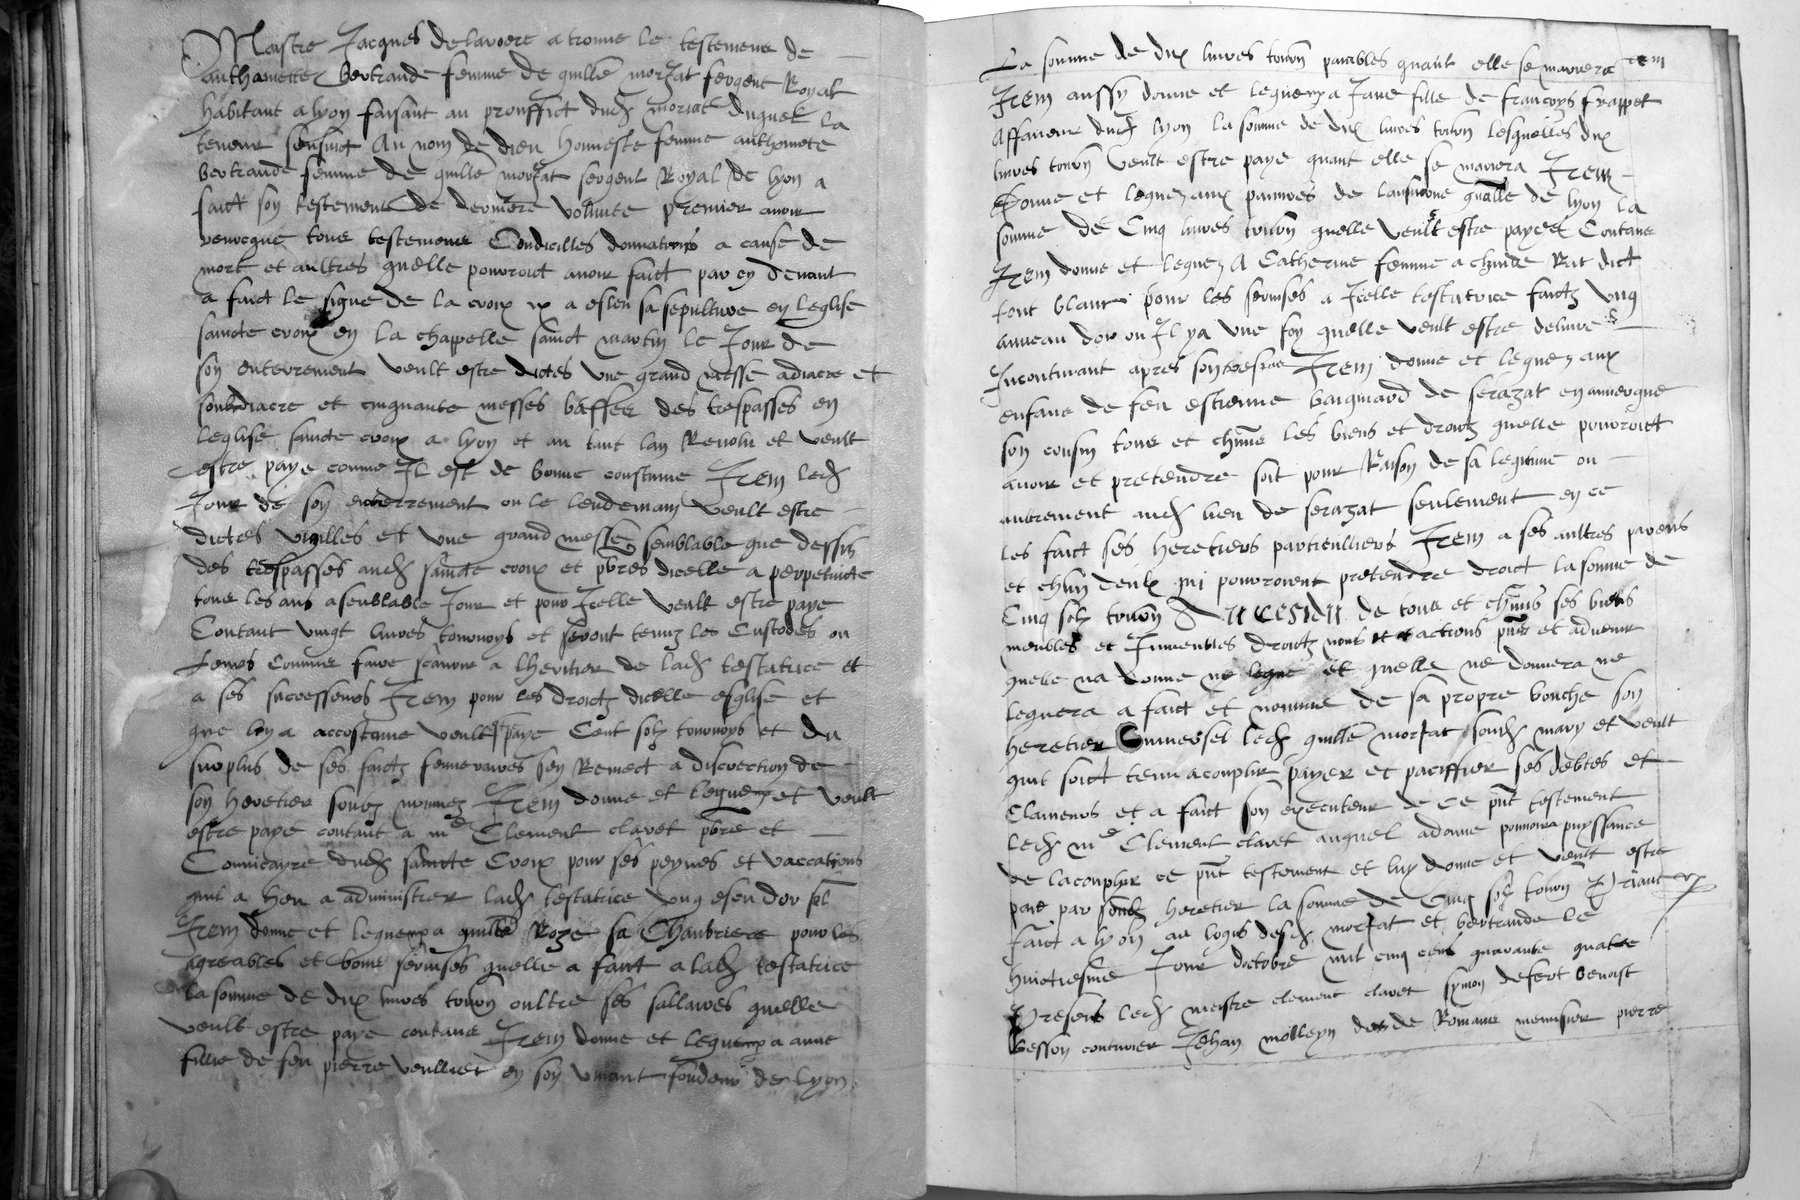 Maistre Jacques delavoere a trouve le testement de
anthoinette bertrande femme de guille morzat sergent Royal
habitant a lyon faisant au prouffict dud morzat duquel la
teneur sensuict Au nom de dieu honneste femme anthoinete
bertrande femme de guille morzat sergent Royal de lyon a
faict son testement de derniere volunte premier avoir
revocque tous testemens Condicilles donnations a cause de
mort et aultres quelle pourroict avoir faict par cy devant
a faict le signe de la croix a esleu sa sepulture en leglise
saincte croix en la chappelle sainct martin le Jour de
son enterrement veult estre dictes une grand messe a diacre et
soubdiacre et cinquante messes basses des trespasses en
leglise saincte croix a lyon et au tant lan Revolu et veult
estre paye comme Il est de bonne coustume Item led
Jour de son enterrement ou le lendemain veult estre
dictes vigilles et une grand messe semblable que dessus
des trespasses aud saincte croix et pbres dicelle a perpetuite
tous les ans a semblable Jour et pour Icelle veult estre paye
Contant vingt livres tournoys et seront tenuz les Custodes ou
temps Comme faire scavoir a lheritier de lad testatrice et
a ses successeurs Item pour les droictz dicelle esglise et
que lon a accostume veult estre paye Cent solz tournoys et du
surplus de ses faictz funeraires sen Remect a discrection de
son heretier soubz nomme Item donne et leguez et veult
estre paye contant a me Clement claret pbre et
Commcayre dud saincte Croix pour ses peynes et vaccations
quil a heu a administrer lad testatrice ung escu dor sol
Item donne et leguez a guille Roze sa Chanbriere pour les
agreables et bons services quelle a faict a lad testatrice
la somme de dix livres tourn oultre ses sallaires quelle
veult estre paye contant Item donne et leguez a anne
fillie de feu pierre veulliet en son vivant fondeur de lyon
La somme de dix livres tourn payables quant elle se mariera
Item aussy donne et leguez a Jane fille de francoys frappet
Affaneur dud lyon la somme de dix livres tourn lesquelles dix
livres tourn veult estre paye quant elle se mariera Item
Donne et leguez aux pauvres de laulmone gnalle de lyon la
somme de Cinq livres tourn quelle veult estre payees Contant
Item donne et leguez A Catherine femme a Rat dict
tout blanc pour les services a Icelle testatrice faictz ung
anneau dor ou Il y a une foy quelle veult estre delivre
Incontinant apres son trespas Item donne et leguez aux
enfans de feu estienne de serazat en auvergne
son cousin tous et chuns les biens et droictz quelle pourroict
avoir et pretendre soit pour Raison de sa legitime ou
aultrement aud lieu de serazat seulement en ce
les faict ses heretiers particulliers Item a ses aultres parens
et chun deulx qui pourroient pretendre droict la somme de
Cinq solz tourn Au Residu de tous et chuns ses biens
meubles et Immeubles droictz noms et actions pns et advenir
quelle na donne ne legue et quelle ne donnera ne
leguera a faict et nomme de sa propre bouche son
heretier Universel led guille morzat sond mary et veult
quil soict tenu acomplir payer et paciffier ses debtes et
Clameurs et a faict son executeur de ce pnt testement
led me Clement claret auquel a donne pouvoir puyssance
de lacomplyr ce pnt testement et luy donne et veult estre
paie par sond heretier la somme de Cinq solz tourn Priant
faict a lyon au logis desd morzat et bertrande le
huictiesme Jour doctobre mil cinq cens quarante quatre
Presens led meistre clement claret symon defert benoist
besson cousturier Jehan molleyn de Romans menusier pierre